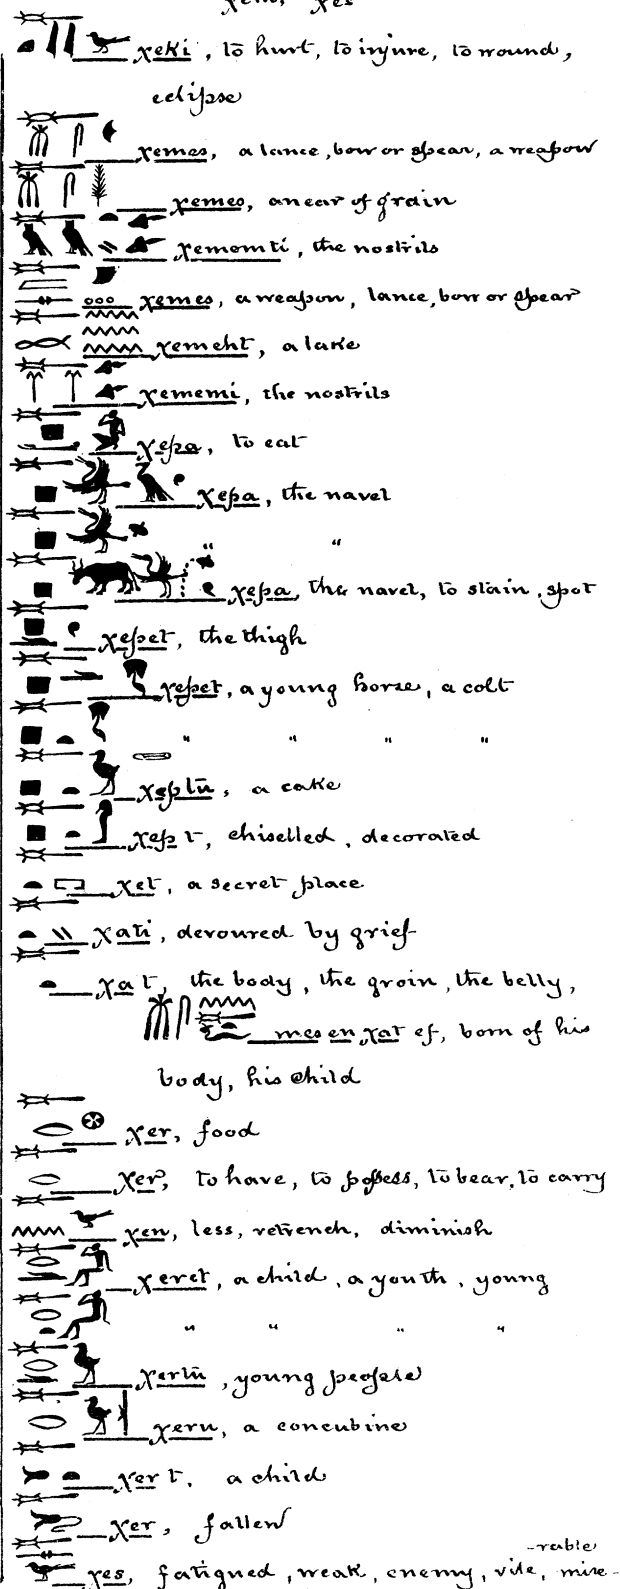 χeki, to hurt, to injure, to wound,
eclipse
χemes, a lance, bow or spear, a weapon
χemes, an ear of grain
χememti, the nostrils
χemes, a weapon, lance, bow or spear
χemeht, a lake
χememi, the nostrils
χepa, to eat
χepa, the navel
" "
χepa, the navel, to stain, spot
χepet, the thigh
χepet, a young horse, a colt
" " " "
χeptū, a cake
χep t, chiselled, decorated
χet, a secret place
χati, devoured by grief
χa t, the body, the groin, the belly,
mes en χat ef, born of his
body, his child
χer, food
χer, to have, to possess, to bear, to carry
χen, less, retrench, diminish
χeret, a child, a youth, young
" " " "
χertū, young people
χeru, a concubine
χer t, a child
χer, fallen
-rable
χes, fatigued, weak, enemy, vile, mise-